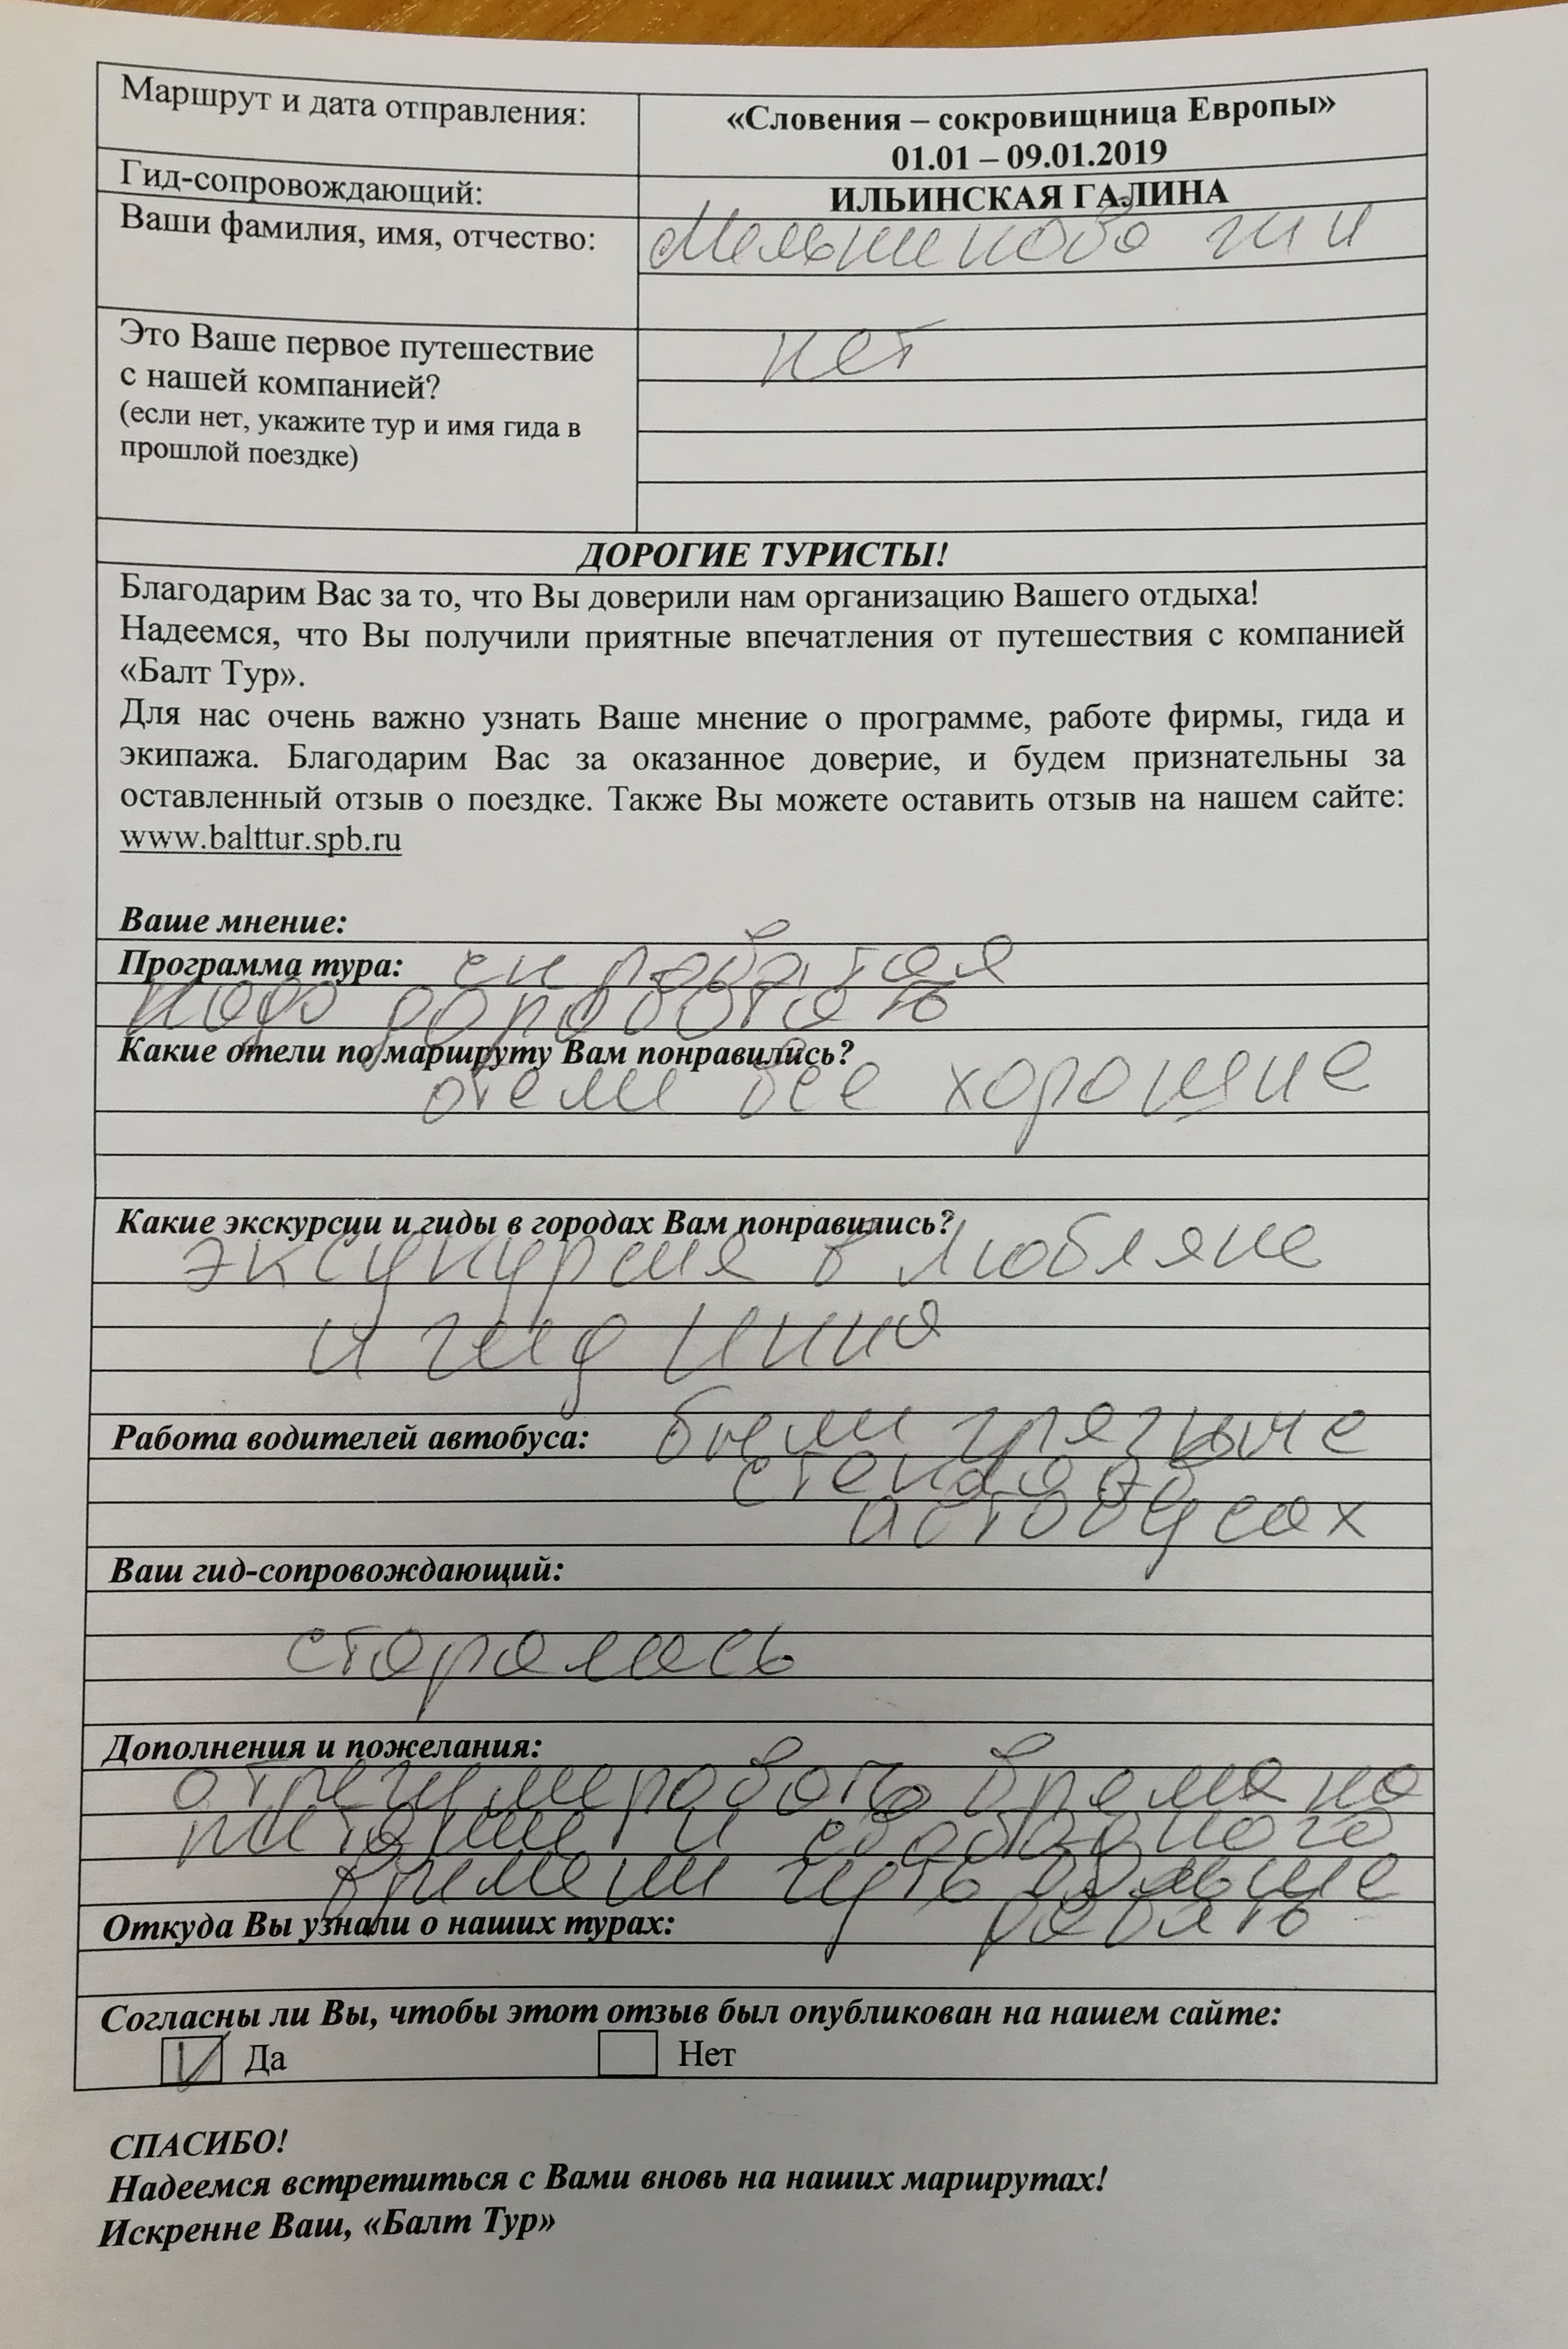 Маршрут и дата отправления:
«Словения – сокровищница Европы»
01.01 – 09.01.2019
Гид-сопровождающий:
ИЛЬИНСКАЯ ГАЛИНА
Ваши фамилия, имя, отчество:
Мельникова
Это Ваше первое путешествие
с нашей компанией?
(если нет, укажите тур и имя гида в
прошлой поездке)
нет
ДОРОГИЕ ТУРИСТЫ!
Благодарим Вас за то, что Вы доверили нам организацию Вашего отдыха!
Надеемся, что Вы получили приятные впечатления от путешествия с компанией
«Балт Тур».
Для нас очень важно узнать Ваше мнение о программе, работе фирмы, гида и
экипажа. Благодарим Вас за оказанное доверие, и будем признательны за
оставленный отзыв о поездке. Также Вы можете оставить отзыв на нашем сайте:
www.balttur.spb.ru
Ваше мнение:
Программа тура:
надо доработать
Какие отели по маршруту Вам понравились?
отели все хорошие
Какие экскурсии и гиды в городах Вам понравились?
экскурсия в Любляне
и гид Инна
Работа водителей автобуса: были грязные
стекла в
автобусах
Ваш гид-сопровождающий:
старалась
Дополнения и пожелания:
время на
питание и свободного
времени чуть больше
Откуда Вы узнали о наших турах:
Согласны ли Вы, чтобы этот отзыв был опубликован на нашем сайте:
V Да Нет
СПАСИБО!
Надеемся встретиться с Вами вновь на наших маршрутах!
Искренне Ваш, «Балт Тур»